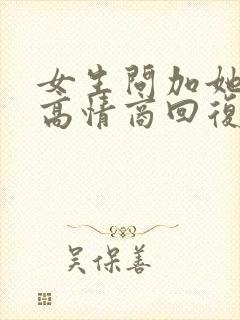 女生問加她
高情商回復
吴保善